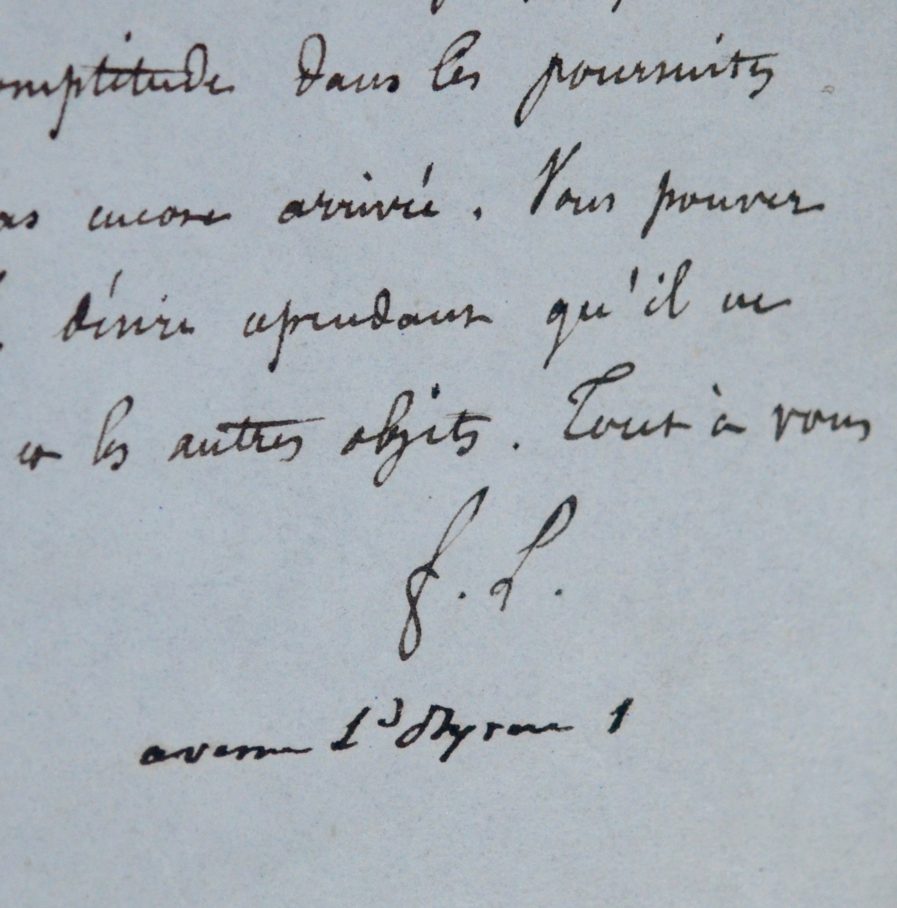 omptitude dans les poursuites
as encore arrivé. Vous pouvez
désire cependant qu'il ne
et les autres objets. Tout à vous
f. L.
avenue Ld Byron 1